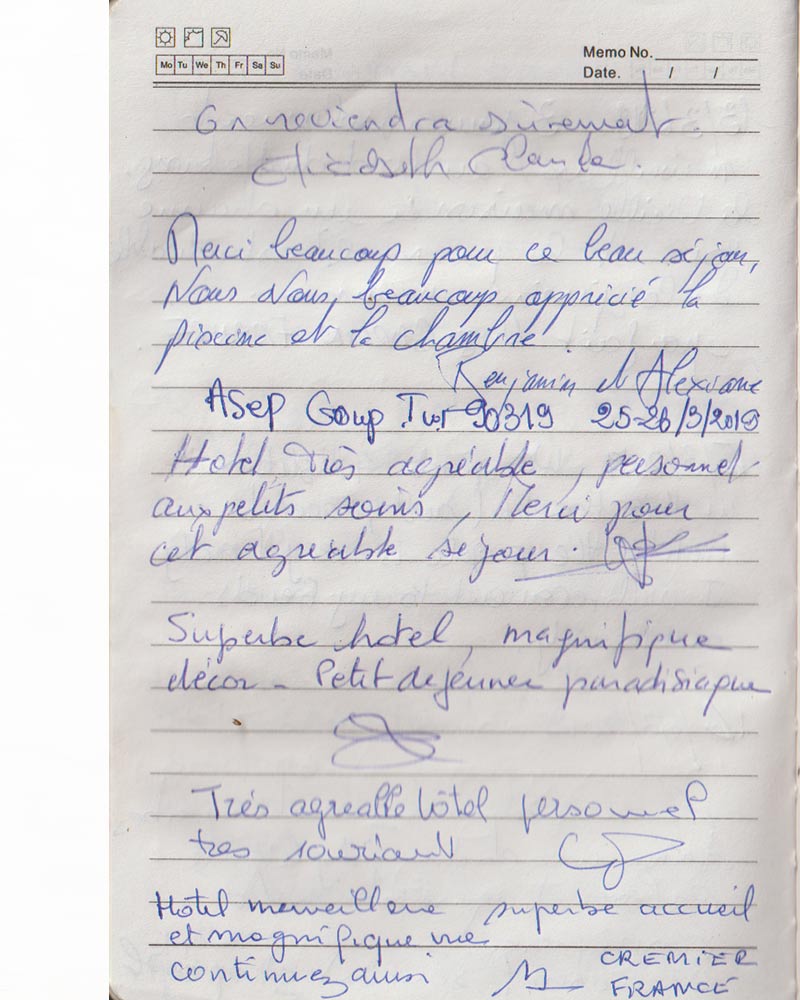 Mo Tu We Th Fr Sa Su
Memo No.
Date. / /
On reviendra sûrement.
Merci beaucoup pour ce beau séjour,
Nous Nous beaucoup apprécié la
piscine et la chambre.
Benjamin et Alexiane
Asep Goup Tur 90319 25-26/3/2019
Hotel Très agréable, personnel
aux petits soins, Merci pour
cet agréable séjour.
Superbe hotel, magnifique
décor - Petit dejeuner paradisiaque
Très agreable hôtel personnel
tres souriant
Hôtel merveilleux superbe accueil
et magnifique vue
continuez ainsi CREMIER
FRANCE